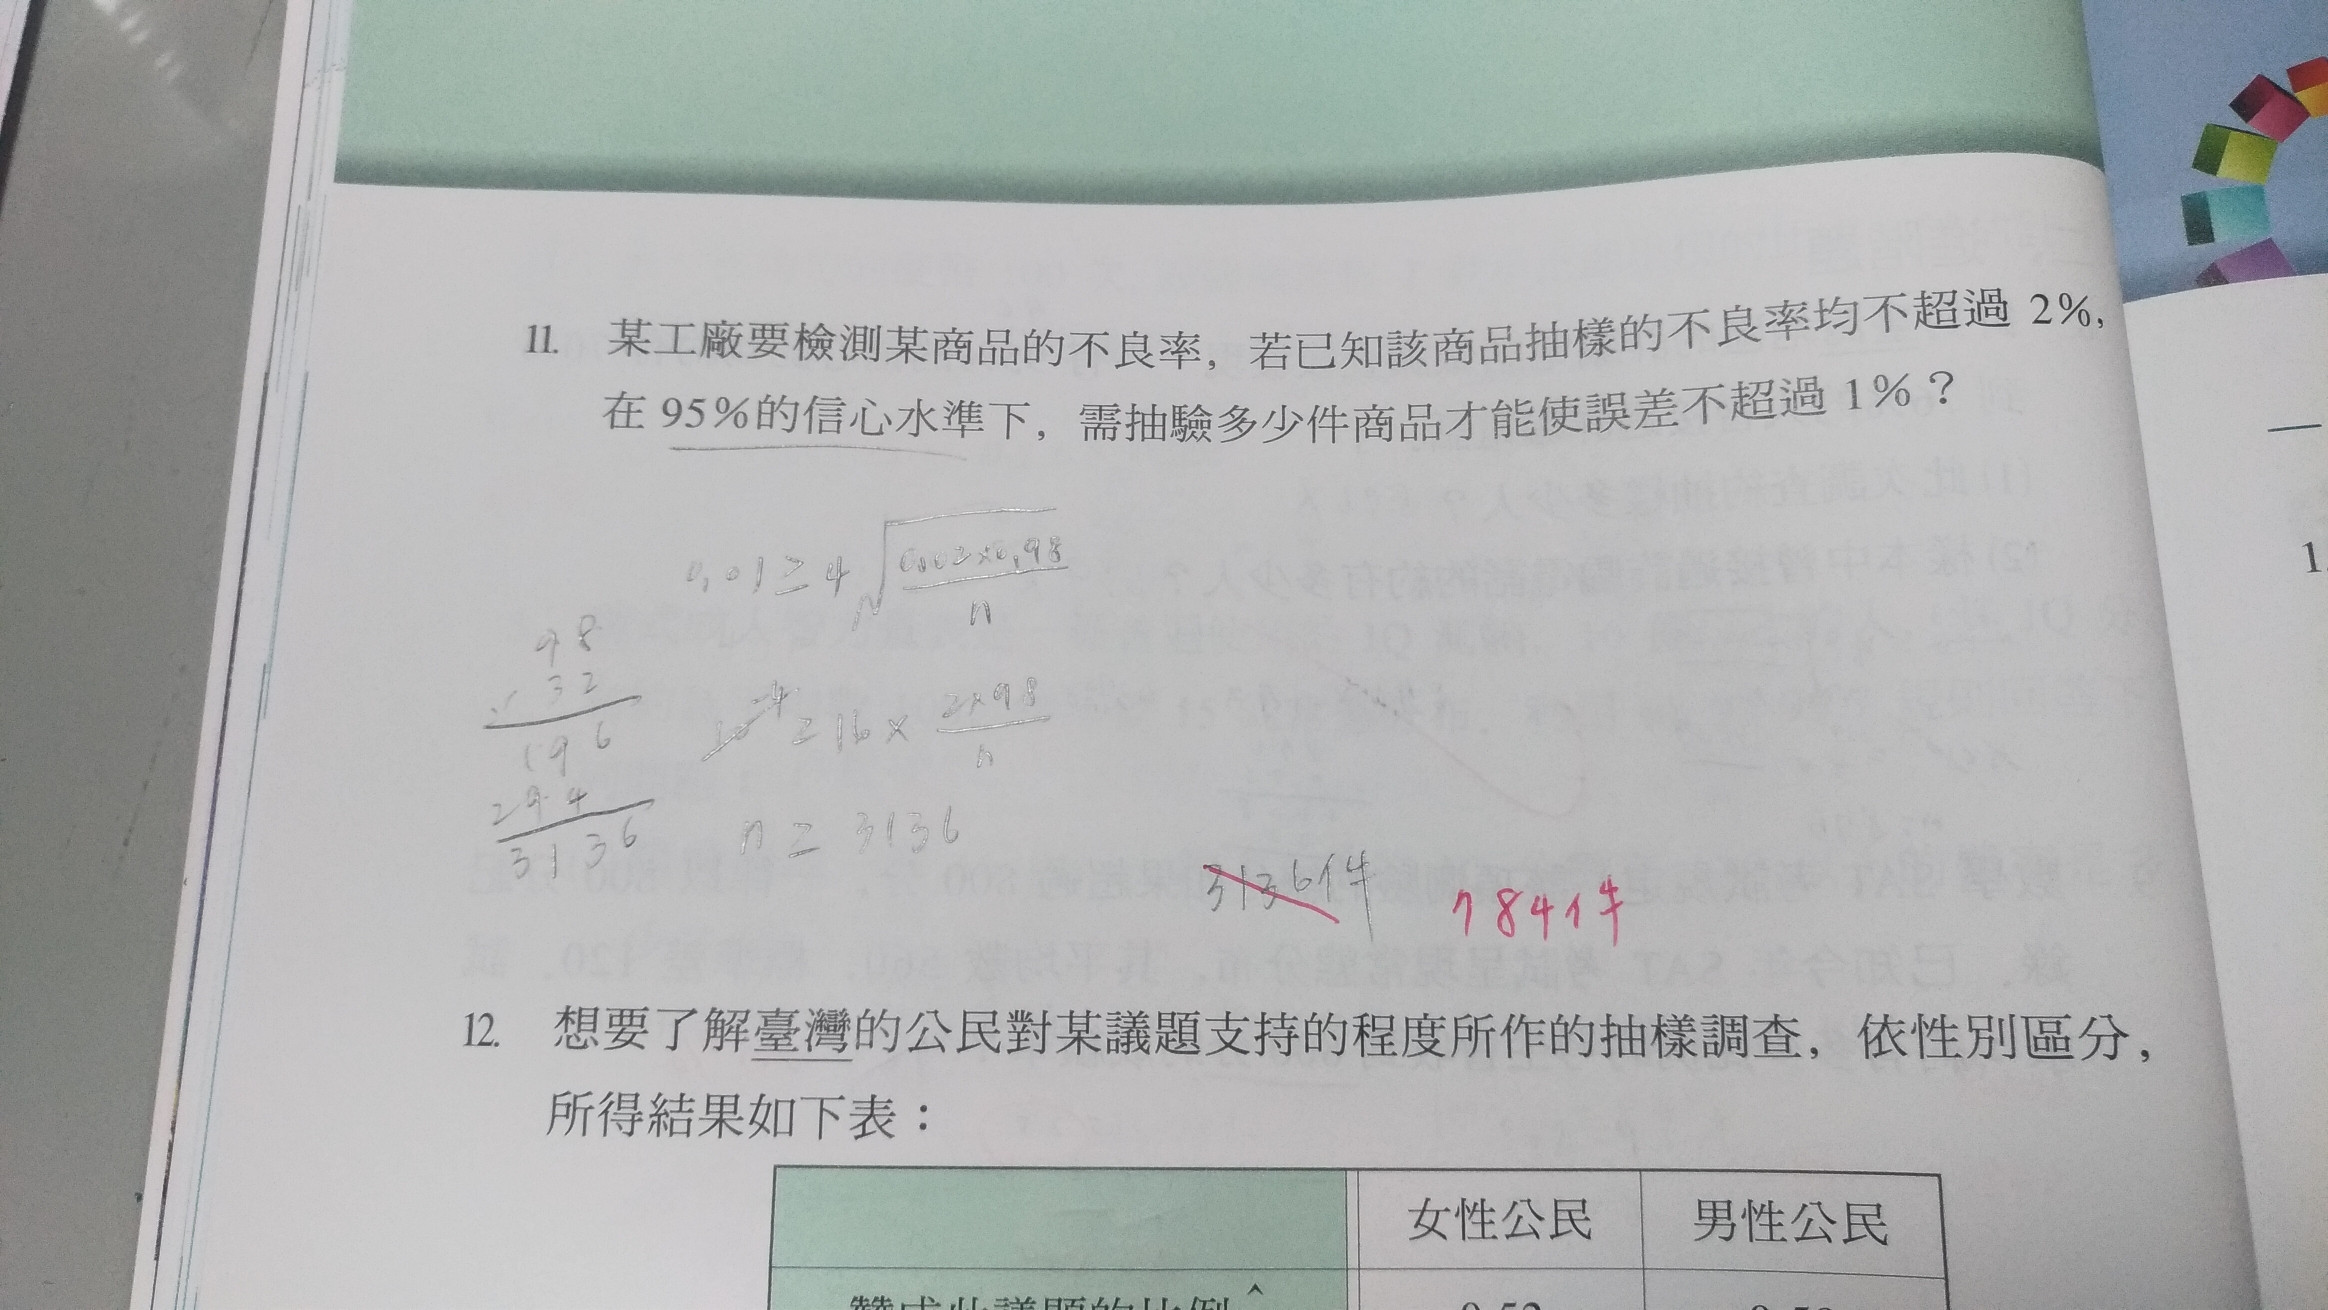 11. 某工廠要檢測某商品的不良率，若已知該商品抽樣的不良率均不超過 2%，
在 95%的信心水準下，需抽驗多少件商品才能使誤差不超過 1%？
0.01≥4√(0.02×0.98/n)
98
× 32
196
294
3136
10⁻⁴≥16×(2×98/n)
n≥3136
3136件 784件
12. 想要了解臺灣的公民對某議題支持的程度所作的抽樣調查，依性別區分，
所得結果如下表：
女性公民 男性公民